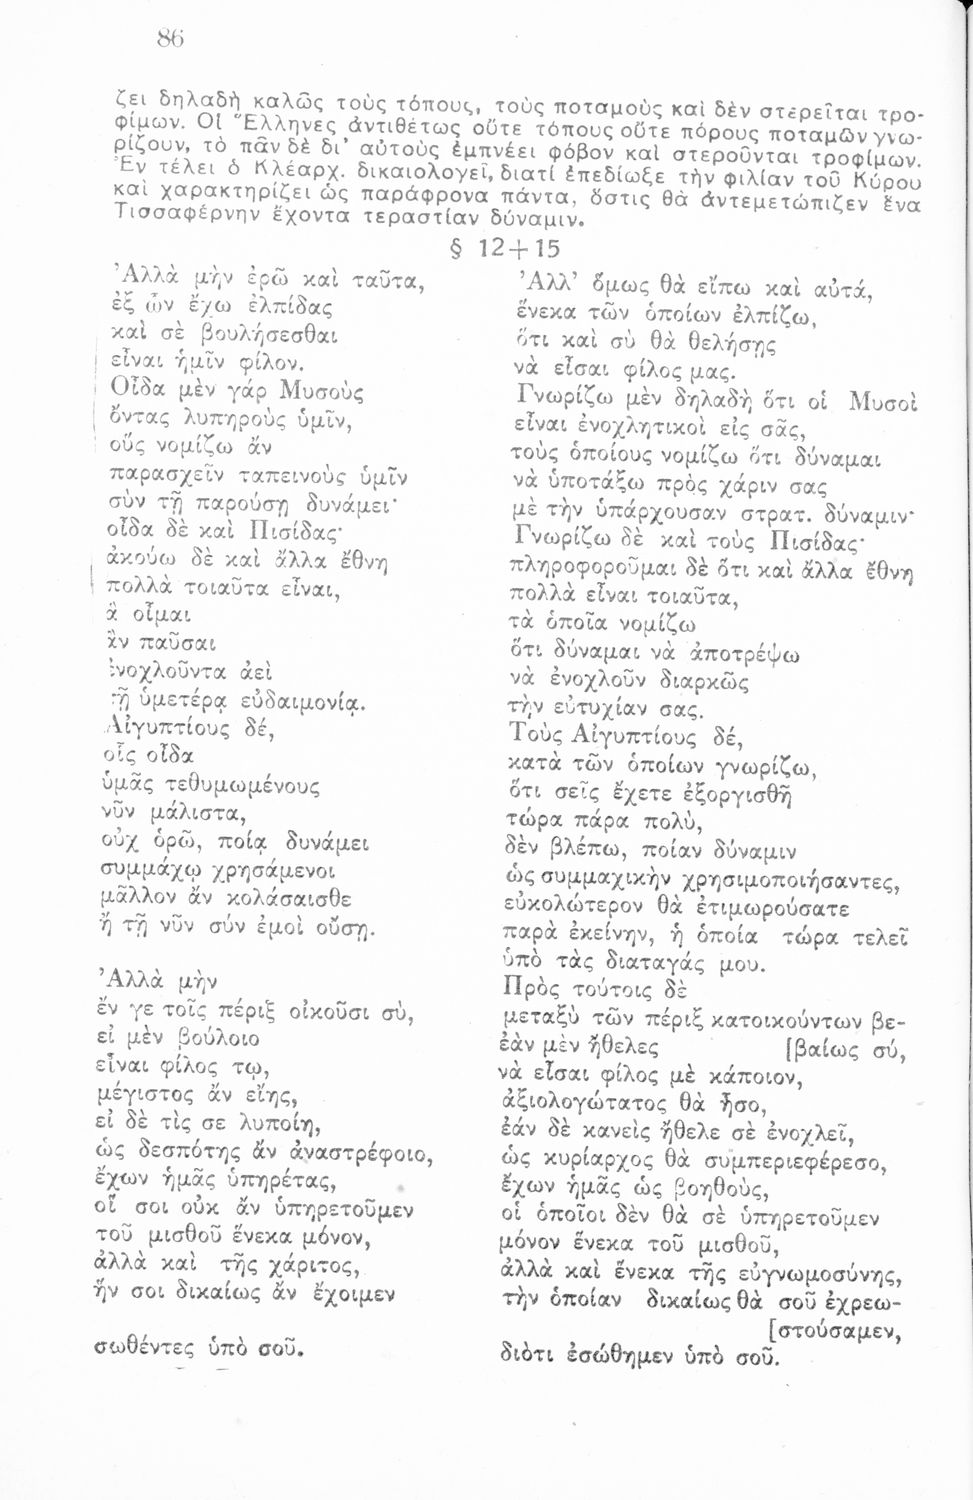 86
ζει δηλαδὴ καλῶς τοὺς τόπους, τοὺς ποταμοὺς καὶ δὲν στερεῖται τρο-
φίμων. Οἱ Ἕλληνες ἀντιθέτως οὔτε τόπους οὔτε πόρους ποταμῶν γνω-
ρίζουν, τὸ πᾶν δὲ δι' αὐτοὺς ἐμπνέει φόβον καὶ στεροῦνται τροφίμων.
Ἐν τέλει ὁ Κλέαρχ. δικαιολογεῖ, διατί ἐπεδίωξε τὴν φιλίαν τοῦ Κύρου
καὶ χαρακτηρίζει ὡς παράφρονα πάντα, ὅστις θὰ ἀντεμετώπιζεν ἕνα
Τισσαφέρνην ἔχοντα τεραστίαν δύναμιν.
§ 12+15
Ἀλλὰ μὴν ἐρῶ καὶ ταῦτα,
ἐξ ὧν ἔχω ἐλπίδας
καὶ σὲ βουλήσεσθαι
εἶναι ἡμῖν φίλον.
Οἶδα μὲν γάρ Μυσοὺς
ὄντας λυπηροὺς ὑμῖν,
οὓς νομίζω ἄν
παρασχεῖν ταπεινοὺς ὑμῖν
σὺν τῇ παρούσῃ δυνάμει·
οἶδα δὲ καὶ Πισίδας·
ἀκούω δὲ καὶ ἄλλα ἔθνη
πολλὰ τοιαῦτα εἶναι,
ἃ οἶμαι
ἂν παῦσαι
ἐνοχλοῦντα ἀεὶ
τῇ ὑμετέρᾳ εὐδαιμονίᾳ.
Αἰγυπτίους δέ,
οἷς οἶδα
ὑμᾶς τεθυμωμένους
νῦν μάλιστα,
οὐχ ὁρῶ, ποίᾳ δυνάμει
συμμάχῳ χρησάμενοι
μᾶλλον ἄν κολάσαισθε
ἢ τῇ νῦν σύν ἐμοὶ οὔσῃ.
Ἀλλὰ μὴν
ἔν γε τοῖς πέριξ οἰκοῦσι σὺ,
εἰ μὲν βούλοιο
εἶναι φίλος τῳ,
μέγιστος ἄν εἴης,
εἰ δὲ τὶς σε λυποίη,
ὡς δεσπότης ἄν ἀναστρέφοιο,
ἔχων ἡμᾶς ὑπηρέτας,
οἵ σοι οὐκ ἄν ὑπηρετοῦμεν
τοῦ μισθοῦ ἕνεκα μόνον,
ἀλλὰ καὶ τῆς χάριτος,
ἥν σοι δικαίως ἄν ἔχοιμεν
σωθέντες ὑπὸ σοῦ.
Ἀλλ' ὅμως θὰ εἴπω καὶ αὐτά,
ἕνεκα τῶν ὁποίων ἐλπίζω,
ὅτι καὶ σὺ θὰ θελήσῃς
νὰ εἶσαι φίλος μας.
Γνωρίζω μὲν δηλαδὴ ὅτι οἱ Μυσοὶ
εἶναι ἐνοχλητικοὶ εἰς σᾶς,
τοὺς ὁποίους νομίζω ὅτι δύναμαι
νὰ ὑποτάξω πρὸς χάριν σας
μὲ τὴν ὑπάρχουσαν στρατ. δύναμιν·
Γνωρίζω δὲ καὶ τοὺς Πισίδας·
πληροφοροῦμαι δὲ ὅτι καὶ ἄλλα ἔθνη
πολλὰ εἶναι τοιαῦτα,
τὰ ὁποῖα νομίζω
ὅτι δύναμαι νὰ ἀποτρέψω
νὰ ἐνοχλοῦν διαρκῶς
τὴν εὐτυχίαν σας.
Τοὺς Αἰγυπτίους δέ,
κατὰ τῶν ὁποίων γνωρίζω,
ὅτι σεῖς ἔχετε ἐξοργισθῆ
τώρα πάρα πολὺ,
δὲν βλέπω, ποίαν δύναμιν
ὡς συμμαχικὴν χρησιμοποιήσαντες,
εὐκολώτερον θὰ ἐτιμωρούσατε
παρὰ ἐκείνην, ἡ ὁποία τώρα τελεῖ
ὑπὸ τὰς διαταγάς μου.
Πρὸς τούτοις δὲ
μεταξὺ τῶν πέριξ κατοικούντων βε-
ἐὰν μὲν ἤθελες [βαίως σύ,
νὰ εἶσαι φίλος μὲ κάποιον,
ἀξιολογώτατος θὰ ἦσο,
ἐάν δὲ κανεὶς ἤθελε σὲ ἐνοχλεῖ,
ὡς κυρίαρχος θὰ συμπεριεφέρεσο,
ἔχων ἡμᾶς ὡς βοηθοὺς,
οἱ ὁποῖοι δὲν θὰ σὲ ὑπηρετοῦμεν
μόνον ἕνεκα τοῦ μισθοῦ,
ἀλλὰ καὶ ἕνεκα τῆς εὐγνωμοσύνης,
τὴν ὁποίαν δικαίως θὰ σοῦ ἐχρεω-
[στούσαμεν,
διὸτι ἐσώθημεν ὑπὸ σοῦ.